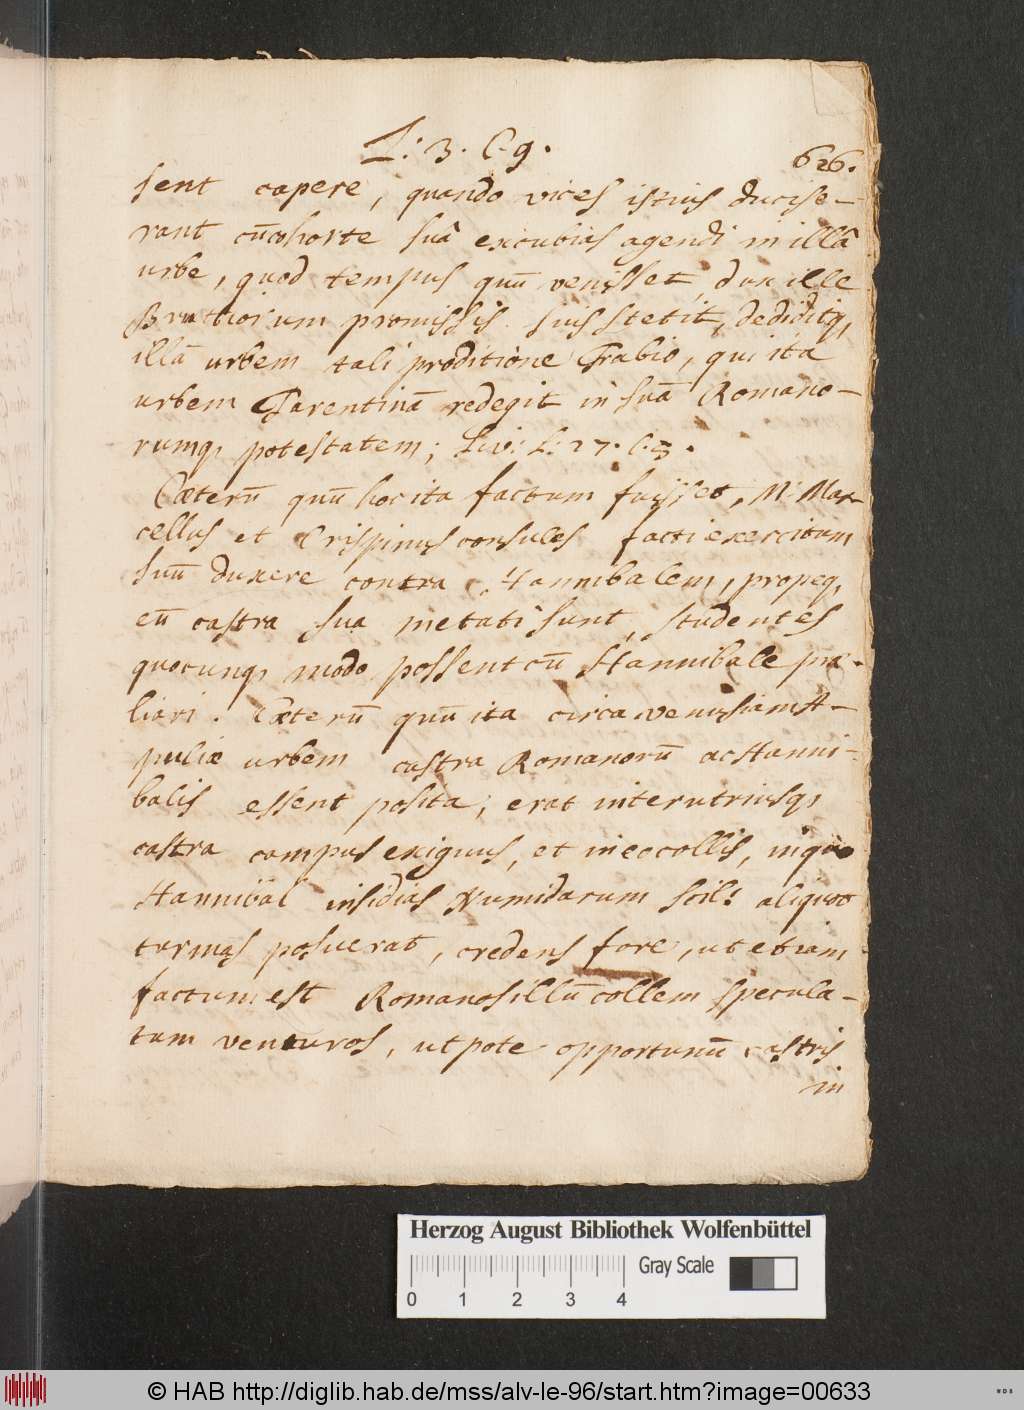 L: 3. C. 9.
626.
sent capere, quando vices istius ducise-
rant cũcohorte suâ excubias agendi in illâ
urbe, quod tempus quũ venisset, dux ille
Bruttiorum promissis suis stetit, dediditq,
illã urbem tali proditione Fabio, qui ita
urbem Tarentinã redegit in suã Romano-
rumq, potestatem; Liv: L: 27. C. 3.
Cæterũ quũ hoc ita factum fuisset, M: Mar-
cellus et Crispinus consules facti exercitum
suũ duxere contra Hannibalem, propeq,
eũ castra sua metati sunt, studentes
quocunq, modo possent cũ Hannibale præ-
liari. Cæterũ quũ ita circa venusiam A-
puliæ urbem castra Romanorũ ac Hanni-
balis essent posita; erat inter utriusq,
castra campus exiguus, et in eo collis, in quo
Hannibal insidias Numidarum scil: aliquot
turmas posuerat, credens fore, ut etiam
factum est Romanos illũ collem specula-
tum venturos, utpote opportunũ castris
in
Herzog August Bibliothek Wolfenbüttel
0 1 2 3 4
Gray Scale
© HAB http://diglib.hab.de/mss/alv-le-96/start.htm?image=00633